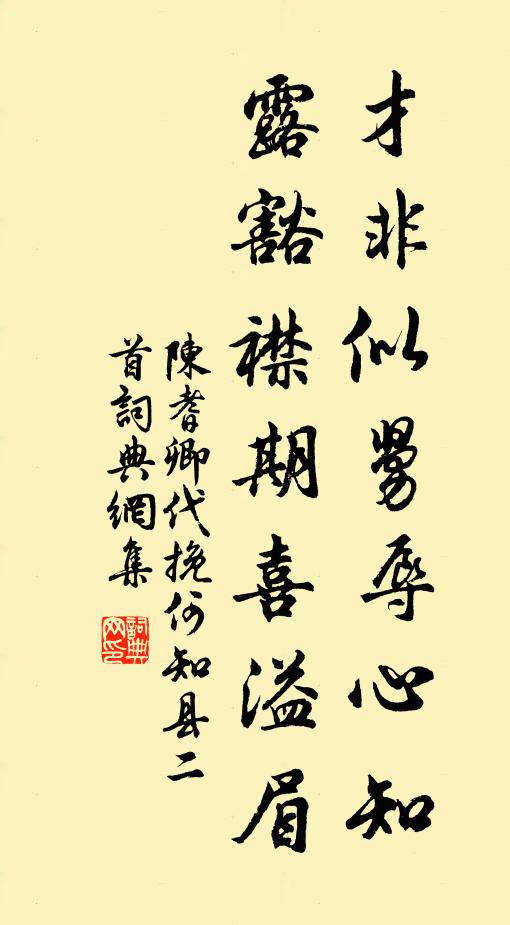 才非似舅辱心知
露豁襟期喜溢眉
陳耆卿代挽何知县二
首詞典網集
詞典网印